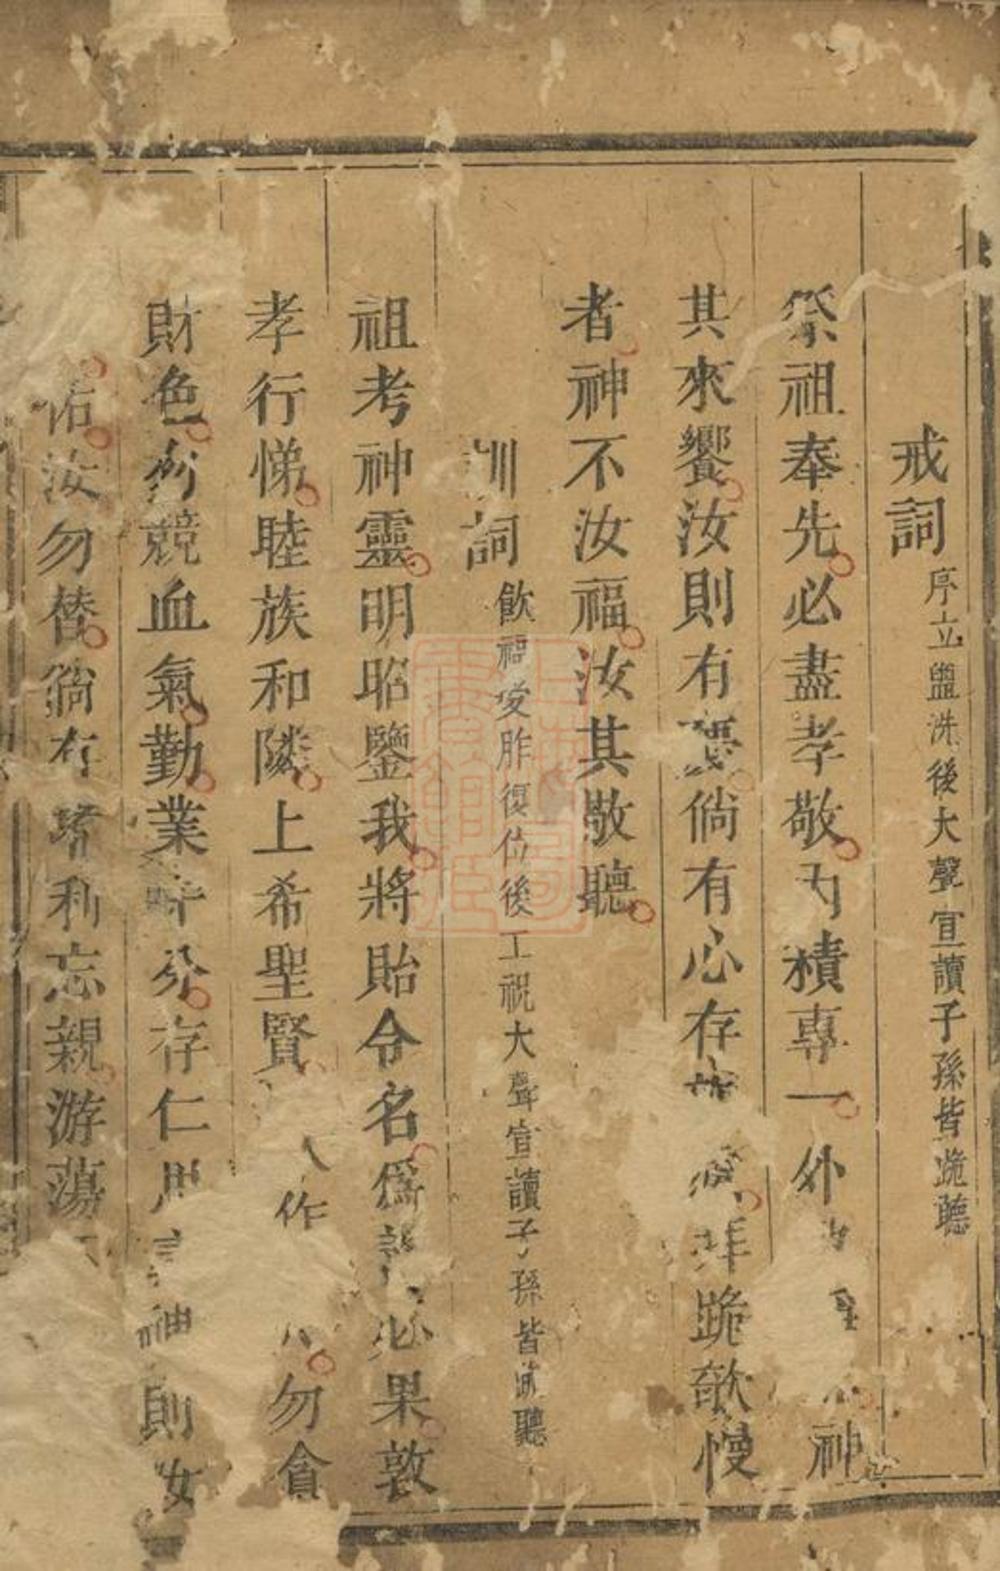 戒詞 序立盥洗後大聲宣讀子孫皆跪聽
祭祖奉先必盡孝敬內積專一外 神
其來饗汝則有慶倘有心存 拜跪欹慢
者神不汝福汝其敬聽
訓詞 飲福受胙復位後工祝大聲宣讀子孫皆跪聽
祖考神靈明昭鑒我將貽令名爲 必果敦
孝行悌睦族和隣上希聖賢 作 勿貪
財色勿競血氣勤業 分存仁 神則汝
佑汝勿替倘有嗜利忘親游蕩